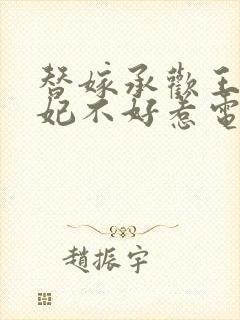 替嫁承歡王
妃不好惹電
趙振宇